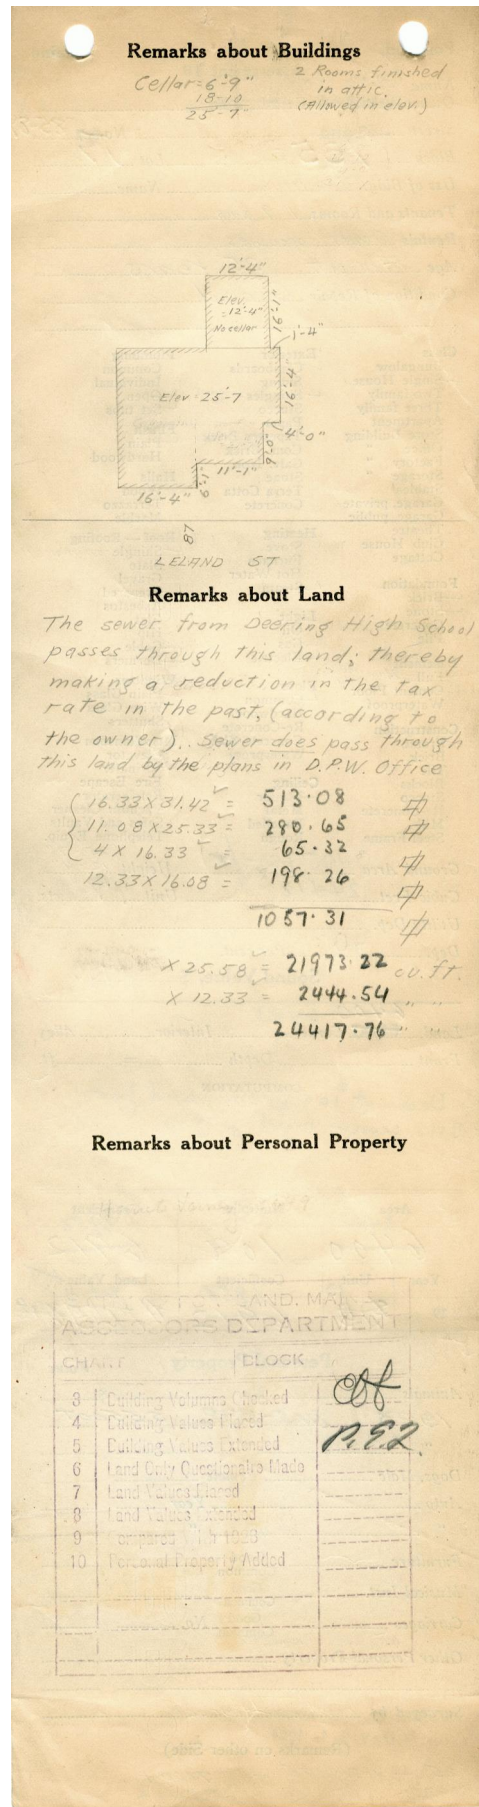 Remarks about Buildings
Cellar = 6'-9"
18-10
25'-7"
2 Rooms finished
in attic.
(Allowed in elev.)
12'-4"
Elev.
= 12'-4"
No cellar
16'-1"
1'-4"
16'-4"
Elev 25'-7
4'-0"
6'-0"
11'-1"
6'-1"
16'-4"
87
LELAND ST
Remarks about Land
The sewer from Deering High School
passes through this land; thereby
making a reduction in the tax
rate in the past, (according to
the owner).. Sewer does pass through
this land by the plans in D.P.W. Office
16.33 X 31.42 = 513.08
11.08 X 25.33 = 280.65
4 X 16.33 = 65.32
12.33 X 16.08 = 198.26
1057.31
X 25.58 = 21973.22 cu. ft.
X 12.33 = 2444.54 " "
24417.76 " "
Remarks about Personal Property
LAND, MAI
ASSESSORS DEPARTMENT
CHART BLOCK
3 Building Volumes Checked
4 Building Values Placed
5 Building Values Extended
6 Land Only Questionaire Made
7 Land Values Placed
8 Land Values Extended
9 Compared With 1923
10 Personal Property Added